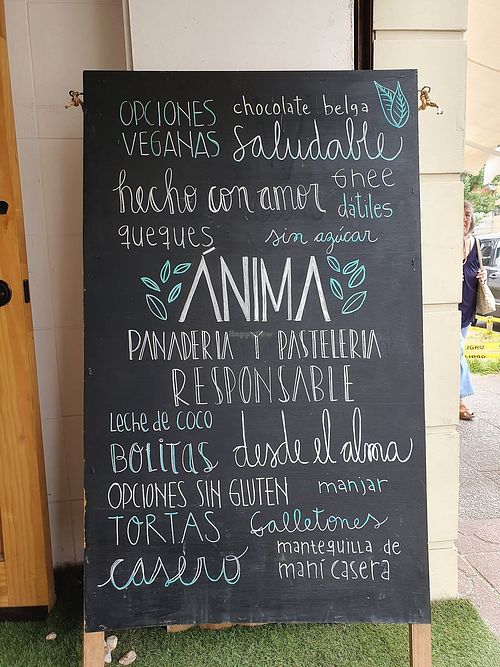 OPCIONES chocolate belga
VEGANAS saludable
hecho con amor Ghee
dátiles
queques sin azúcar
ÁNIMA
PANADERIA Y PASTELERIA
RESPONSABLE
Leche de coco
BOLITAS desde el alma
OPCIONES SIN GLUTEN manjar
TORTAS Galletones
casero mantequilla de
maní casera